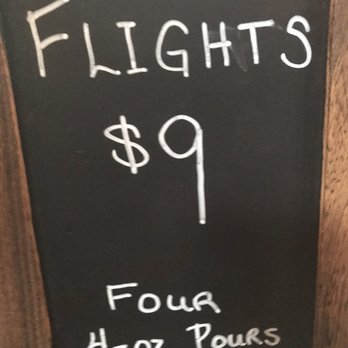 FLIGHTS
$9
FOUR
4-oz POURS